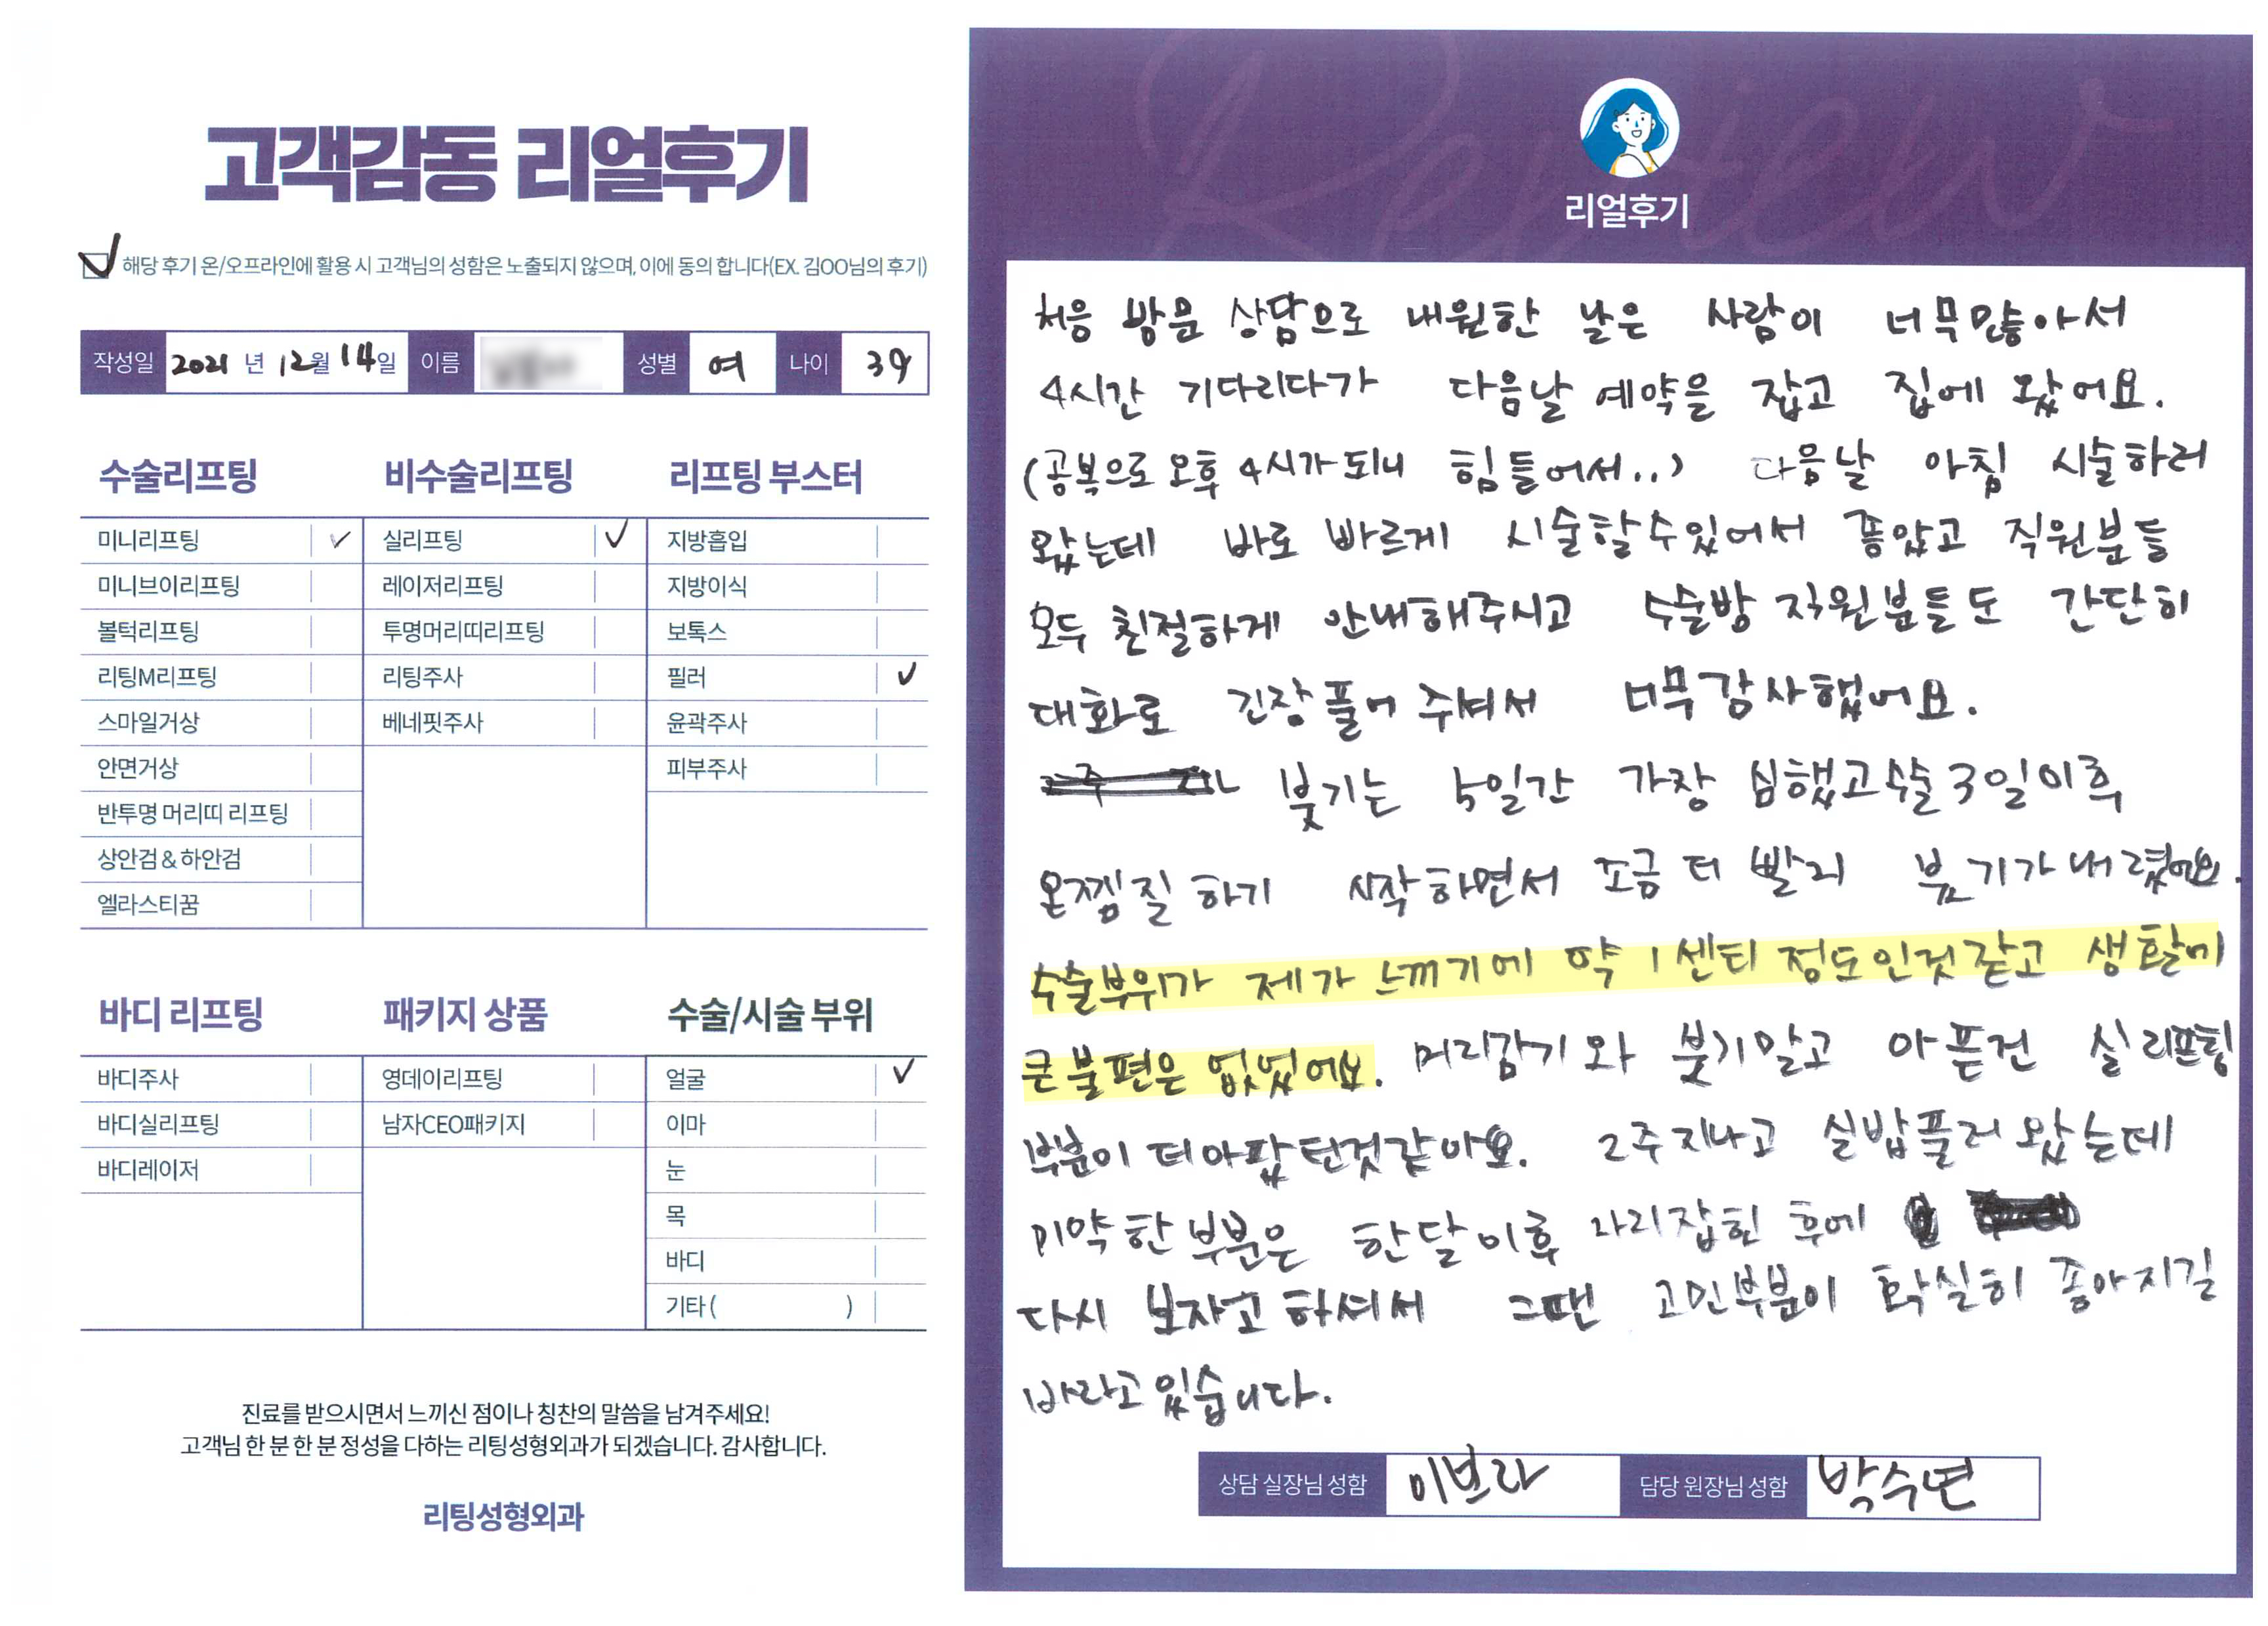 고객감동 리얼후기
해당 후기 온/오프라인에 활용 시 고객님의 성함은 노출되지 않으며, 이에 동의 합니다(EX. 김OO님의 후기)
작성일 2021 년 12월 14일 이름 성별 여 나이 39
수술리프팅
미니리프팅 ✓
미니브이리프팅
볼턱리프팅
리팅M리프팅
스마일거상
안면거상
반투명 머리띠 리프팅
상안검 & 하안검
엘라스티꿈
비수술리프팅
실리프팅 ✓
레이저리프팅
투명머리띠리프팅
리팅주사
베네핏주사
리프팅 부스터
지방흡입
지방이식
보톡스
필러 ✓
윤곽주사
피부주사
바디 리프팅
바디주사
바디실리프팅
바디레이저
패키지 상품
영데이리프팅
남자CEO패키지
수술/시술 부위
얼굴 ✓
이마
눈
목
바디
기타 ( )
진료를 받으시면서 느끼신 점이나 칭찬의 말씀을 남겨주세요!
고객님 한 분 한 분 정성을 다하는 리팅성형외과가 되겠습니다. 감사합니다.
리팅성형외과
Review
리얼후기
처음 방문 상담으로 내원한 날은 사람이 너무많아서
4시간 기다리다가 다음날 예약을 잡고 집에 왔어요.
(공복으로 오후 4시가 되니 힘들어서..) 다음날 아침 시술하러
왔는데 바로 빠르게 시술할수있어서 좋았고 직원분들
모두 친절하게 안내해주시고 수술방 직원분들도 간단히
대화로 긴장풀어 주셔서 너무감사했어요.
붓기는 5일간 가장 심했고 수술 3일이후
온찜질 하기 시작하면서 조금 더 빨리 붓기가 내렸어요.
수술부위가 제가 느끼기에 약 1센티 정도인것 같고 생활에
큰 불편은 없었어요. 머리감기와 붓기말고 아픈건 실리프팅
부분이 더아팠던것같아요. 2주지나고 실밥풀러 왔는데
미약한 부분은 한달이후 자리잡힌 후에
다시 보자고 하셔서 그땐 고민부분이 확실히 좋아지길
바라고있습니다.
상담 실장님 성함 이보라 담당 원장님 성함 박수연